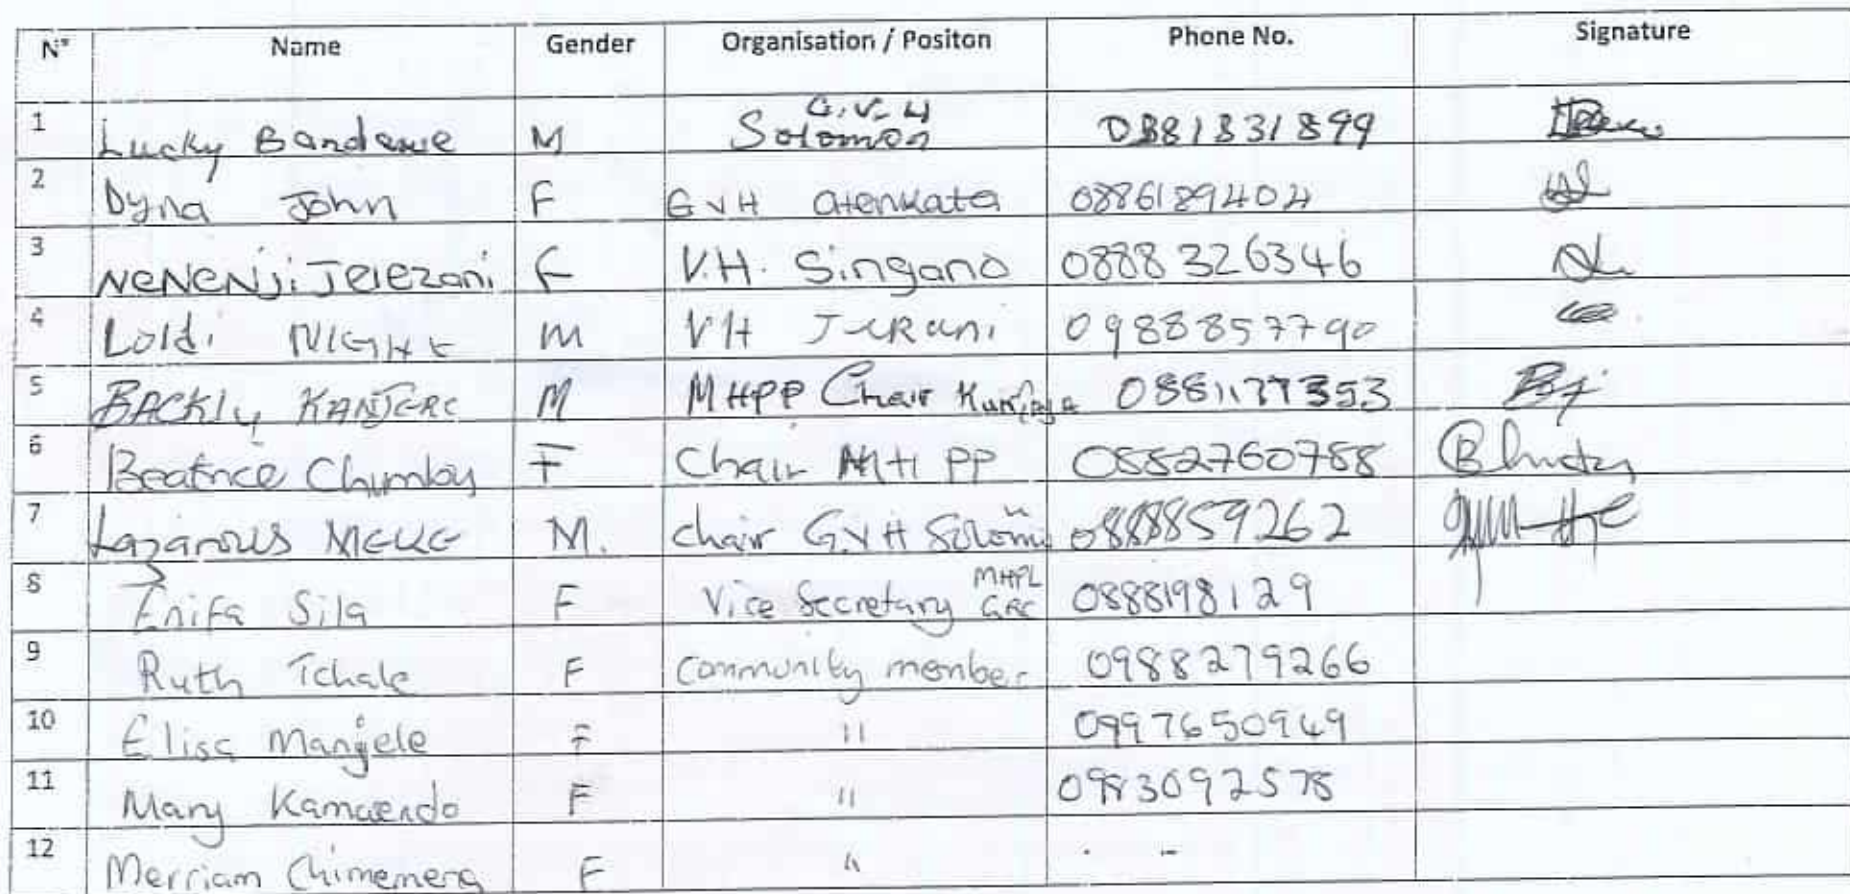 N° Name Gender Organisation / Positon Phone No. Signature
1 Lucky Bandawe M G.V.H Solomon 0881831899
2 Dyna John F GVH 0886189404
3 NeNeNji Jelezani F V.H. Singano 0888326346
4 Loldi NIGHt m VH Jukani 0988857790
5 BACKLy KANJERE M MHPP Chair 0881177353
6 Beatrice F Chair MHPP 0882760788
7 Lazarous Meke M. chair G.V.H 0888859262
8 Enifa Sila F Vice Secretary MHPL GRC 0888198129
9 Ruth Tchale F Community member 0988279266
10 Elisa Manjele F " 0997650949
11 Mary F " 0983092578
12 Merriam Chimemera F " . -